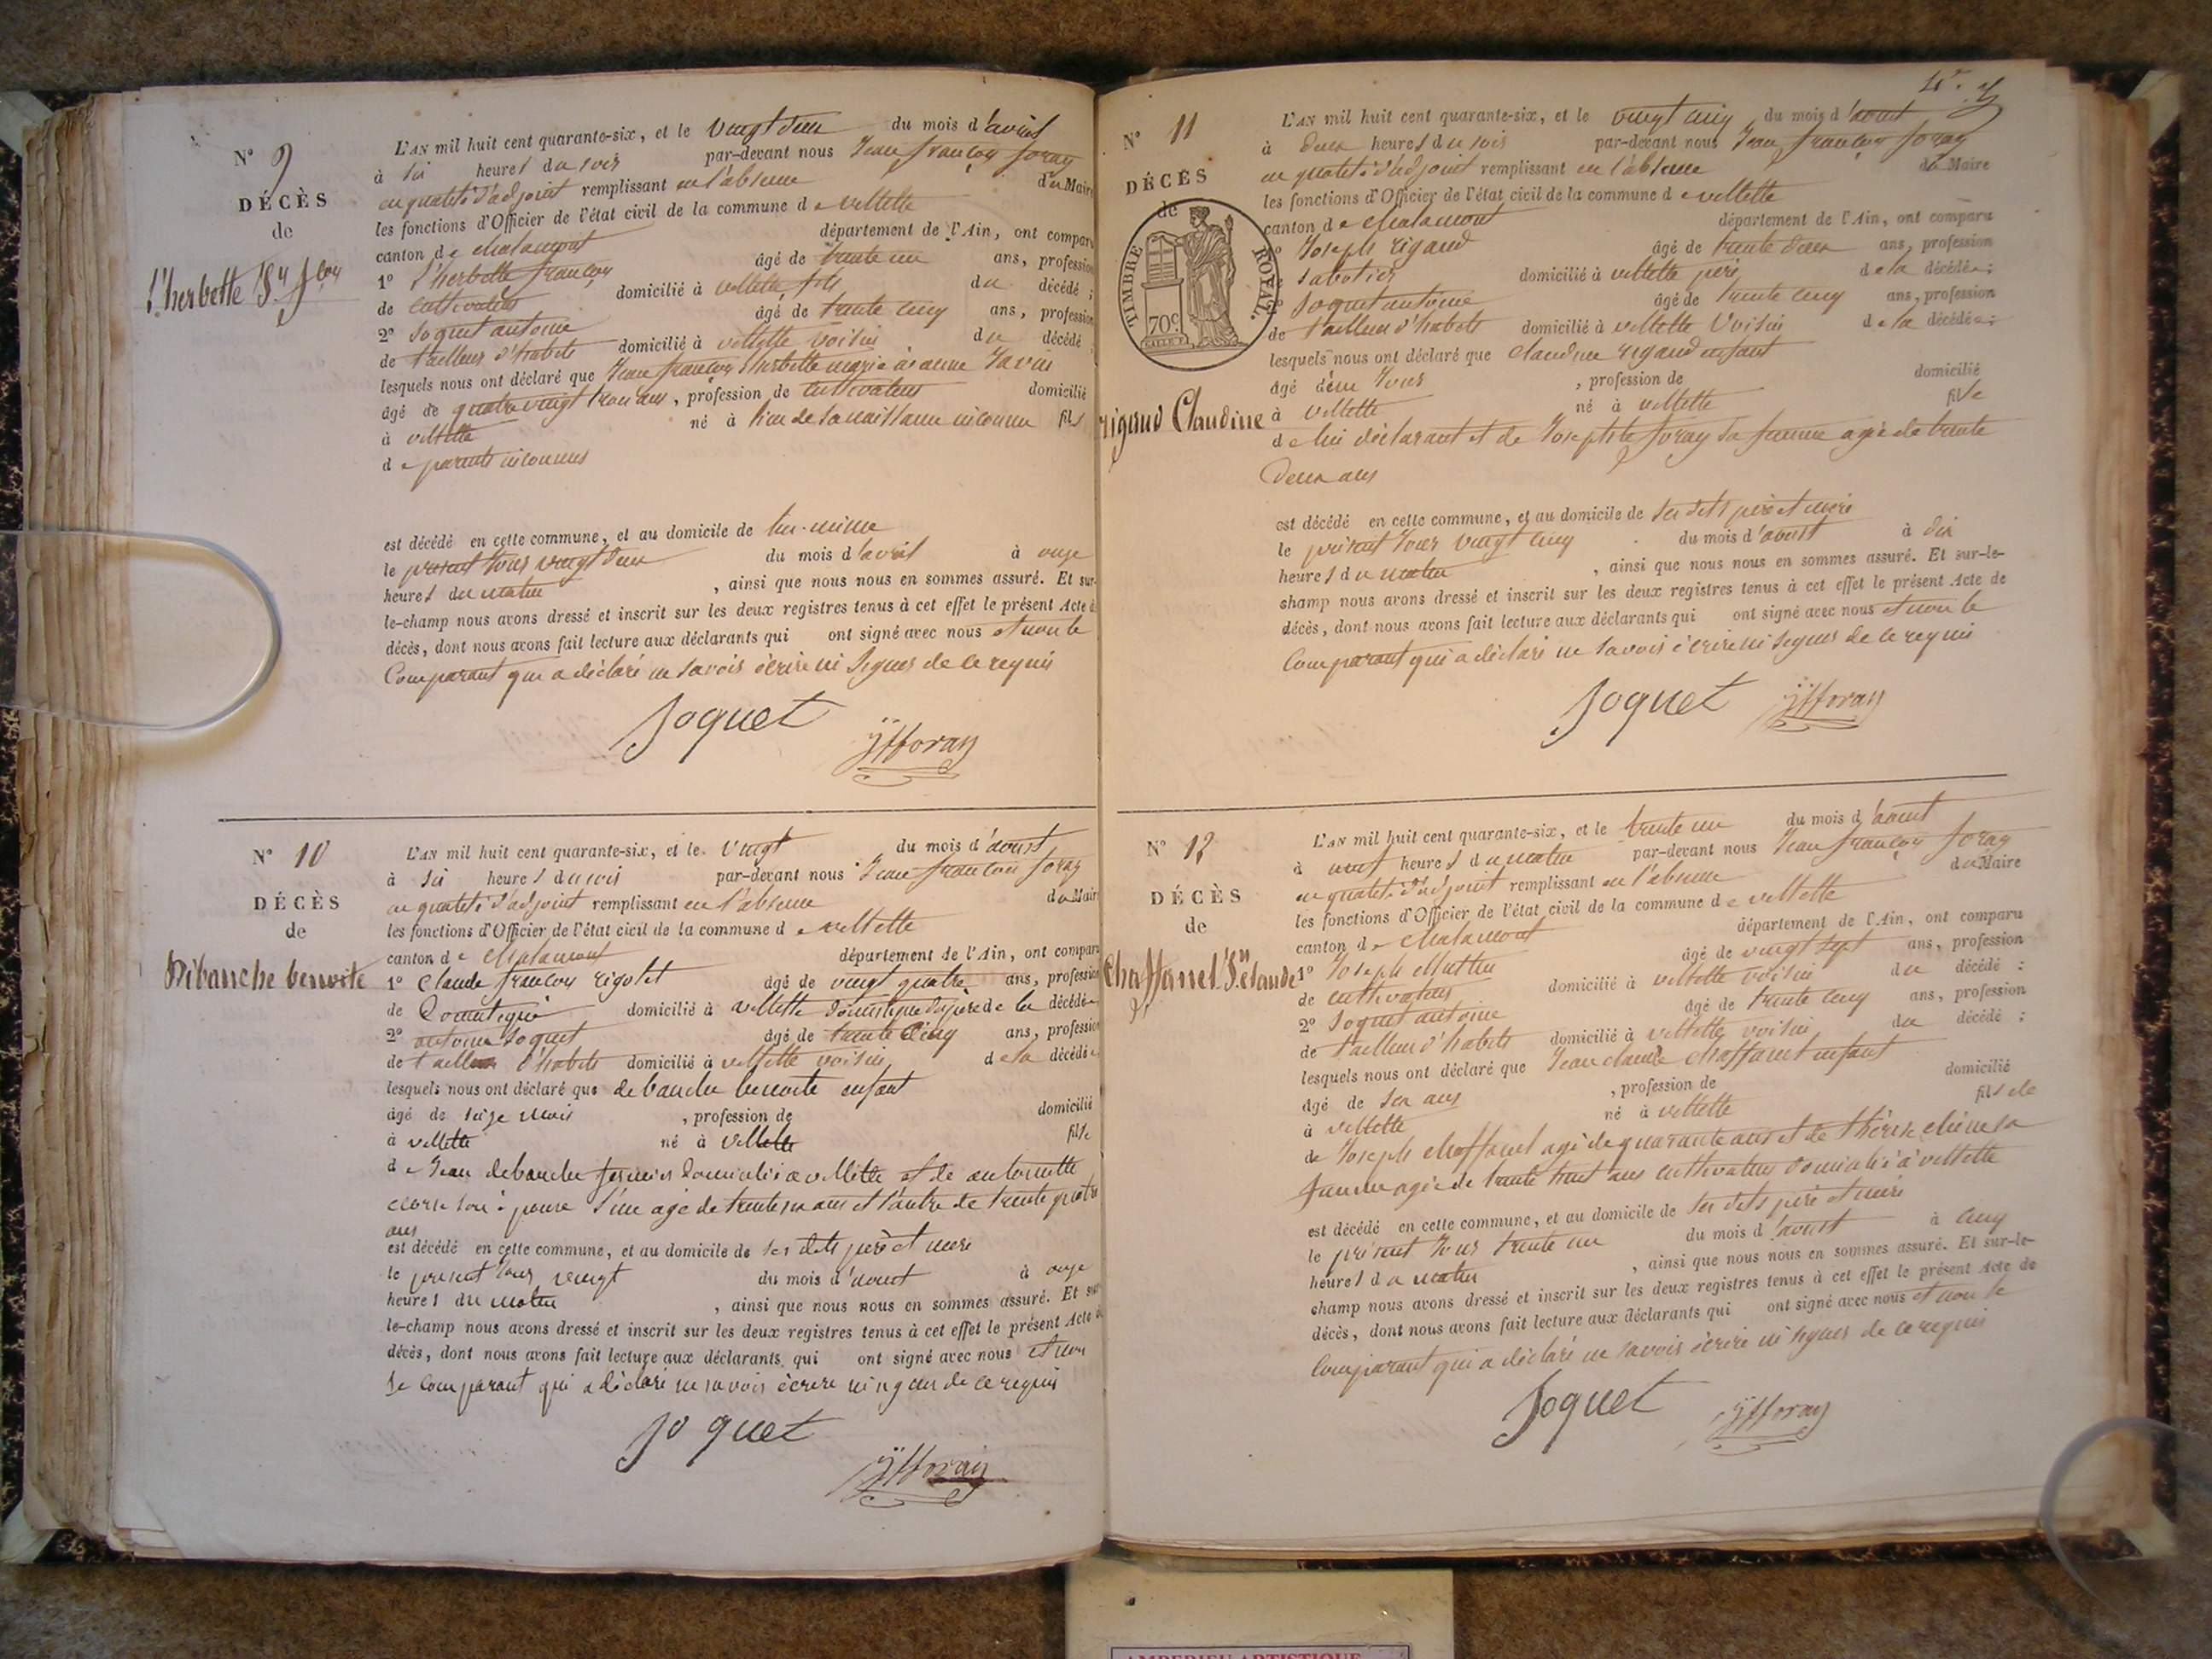 N° 9
DÉCÈS
de
L'herbette J.n f.çois
L'AN mil huit cent quarante-six, et le vingt deux du mois d'avril
à six heures du soir par-devant nous Jean françois foray
en qualité d'adjoint remplissant en l'absence du Maire
les fonctions d'Officier de l'état civil de la commune de villette
canton de chalamont département de l'Ain, ont comparu
1° L'herbette françois âgé de trente un ans, profession
de cultivateur domicilié à villette fils du décédé ;
2° Joquet antoine âgé de trente cinq ans, profession
de tailleur d'habits domicilié à villette voisin du décédé
lesquels nous ont déclaré que Jean françois L'herbette marié à anne
âgé de quatre vingt trois ans, profession de cultivateur domicilié
à villette né à lieu de sa naissance inconnu fils
de parents inconnus
est décédé en cette commune, et au domicile de lui-même
le présent jour vingt deux du mois d'avril à onze
heures du matin , ainsi que nous nous en sommes assuré. Et sur-
le-champ nous avons dressé et inscrit sur les deux registres tenus à cet effet le présent Acte de
décès, dont nous avons fait lecture aux déclarants qui ont signé avec nous et non le
Comparant qui a déclaré ne savoir écrire ni signer de ce requis
Joquet
jfforay
N° 10
DÉCÈS
de
Débanche benoite
L'AN mil huit cent quarante-six, et le vingt du mois d'aoust
à six heures du soir par-devant nous Jean françois foray
en qualité d'adjoint remplissant en l'absence du Maire
les fonctions d'Officier de l'état civil de la commune de villette
canton de chalamont département de l'Ain, ont comparu
1° claude françois rigolet âgé de vingt quatre ans, profession
de Domestique domicilié à villette domestique du père de la décédée
2° antoine Joquet âgé de trente cinq ans, profession
de tailleur d'habits domicilié à villette voisin de la décédée
lesquels nous ont déclaré que debanche benoite enfant
âgé de seize mois , profession de domicilié
à villette né à villette fille
de Jean debanche fermier domicilié à villette et de antoinette
son épouse l'un agé de trente six ans et l'autre de trente quatre
ans
est décédé en cette commune, et au domicile de ses dits père et mere
le present jour vingt du mois d'aoust à onze
heures du matin , ainsi que nous nous en sommes assuré. Et sur-
le-champ nous avons dressé et inscrit sur les deux registres tenus à cet effet le présent Acte de
décès, dont nous avons fait lecture aux déclarants qui ont signé avec nous et non
le comparant qui a déclaré ne savoir écrire ni signer de ce requis
Joquet
jfforay
N° 11
DÉCÈS
de
TIMBRE ROYAL.
70c
rigaud Claudine
L'AN mil huit cent quarante-six, et le vingt cinq du mois d'aoust
à deux heures du soir par-devant nous Jean françois foray
en qualité d'adjoint remplissant en l'absence du Maire
les fonctions d'Officier de l'état civil de la commune de villette
canton de chalamont département de l'Ain, ont comparu
1° Joseph rigaud âgé de trente deux ans, profession
de Sabotier domicilié à villette père de la décédée ;
2° Joquet antoine âgé de trente cinq ans, profession
de tailleur d'habits domicilié à villette Voisin de la décédée ;
lesquels nous ont déclaré que claudine rigaud enfant
âgé d'un Jour , profession de domicilié
à villette né à villette fille
de lui déclarant et de Josephte foray sa femme agée de trente
deux ans
est décédé en cette commune, et au domicile de ses dits père et mère
le présent Jour vingt cinq du mois d'aoust à dix
heures du matin , ainsi que nous nous en sommes assuré. Et sur-le-
champ nous avons dressé et inscrit sur les deux registres tenus à cet effet le présent Acte de
décès, dont nous avons fait lecture aux déclarants qui ont signé avec nous et non le
Comparant qui a déclaré ne savoir écrire ni signer de ce requis
Joquet
jfforay
N° 12
DÉCÈS
de
Chaffanel J.n claude
L'AN mil huit cent quarante-six, et le trente un du mois d'aoust
à neuf heures du matin par-devant nous Jean françois foray
en qualité d'adjoint remplissant en l'absence du Maire
les fonctions d'Officier de l'état civil de la commune de villette
canton de chalamont département de l'Ain, ont comparu
1° Joseph Mathu âgé de vingt sept ans, profession
de cultivateur domicilié à villette voisin du décédé :
2° Joquet antoine âgé de trente cinq ans, profession
de tailleur d'habits domicilié à villette voisin du décédé ;
lesquels nous ont déclaré que Jean claude chaffanel enfant
âgé de six ans , profession de domicilié
à villette né à villette fils de
de Joseph chaffanel agé de quarante ans et de thérèse sa
femme agée de trente huit ans cultivateur domicilié à villette
est décédé en cette commune, et au domicile de ses dits père et mère
le présent Jour trente un du mois d'aoust à cinq
heures du matin , ainsi que nous nous en sommes assuré. Et sur-le-
champ nous avons dressé et inscrit sur les deux registres tenus à cet effet le présent Acte de
décès, dont nous avons fait lecture aux déclarants qui ont signé avec nous et non le
Comparant qui a déclaré ne savoir écrire ni signer de ce requis
Joquet
jfforay
AMBERIEU ARTISTIQUE